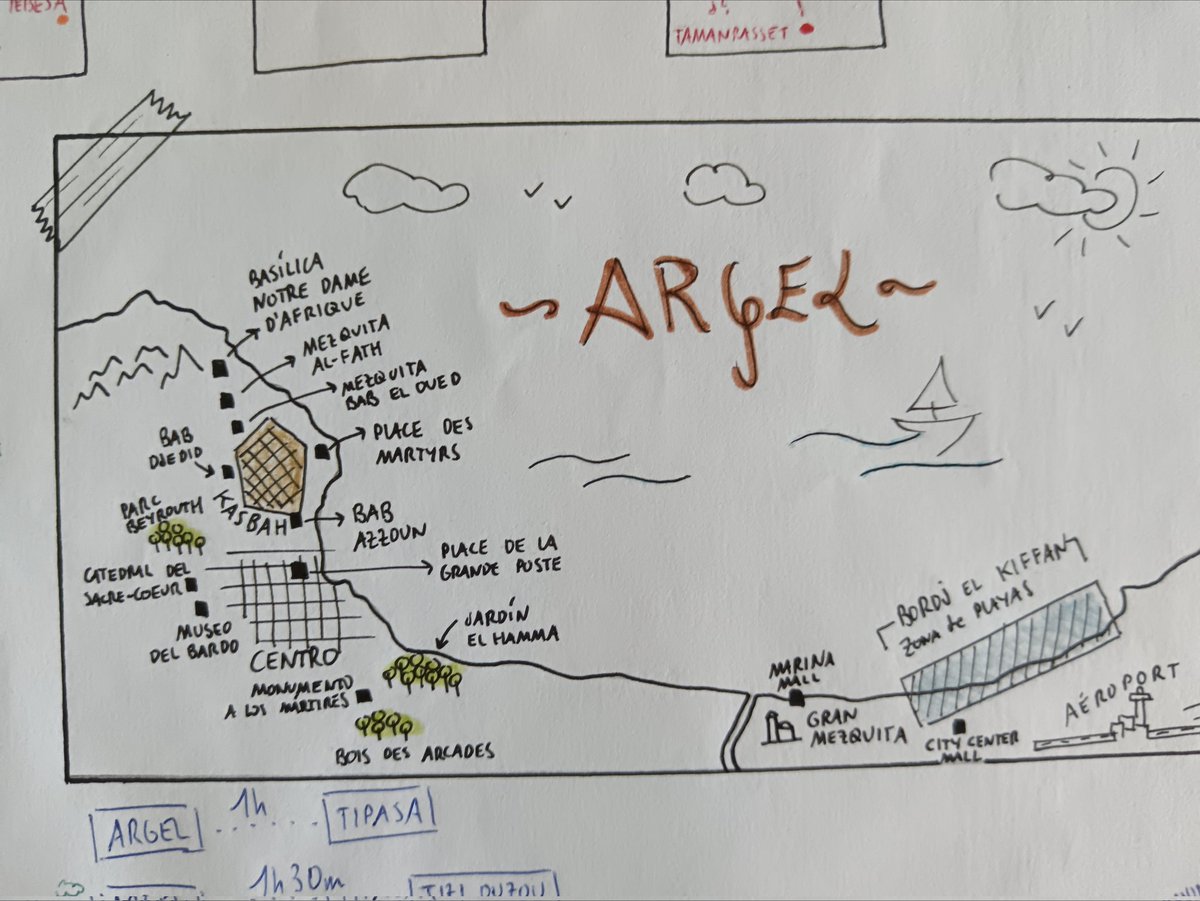 TAMANRASSET
ARGEL
BASÍLICA
NOTRE DAME
D'AFRIQUE
MEZQUITA
AL-FATH
MEZQUITA
BAB EL OUED
PLACE DES
MARTYRS
BAB
DJEDID
KASBAH
PARC
BEYROUTH
BAB
AZZOUN
PLACE DE LA
GRANDE POSTE
CATEDRAL DEL
SACRE-COEUR
MUSEO
DEL BARDO
CENTRO
JARDÍN
EL HAMMA
MONUMENTO
A LOS MÁRTIRES
BOIS DES ARCADES
MARINA
MALL
GRAN
MEZQUITA
BORDJ EL KIFFAN
ZONA de PLAYAS
CITY CENTER
MALL
AÉROPORT
ARGEL 1h TIPASA
1h30m TIZI OUZOU